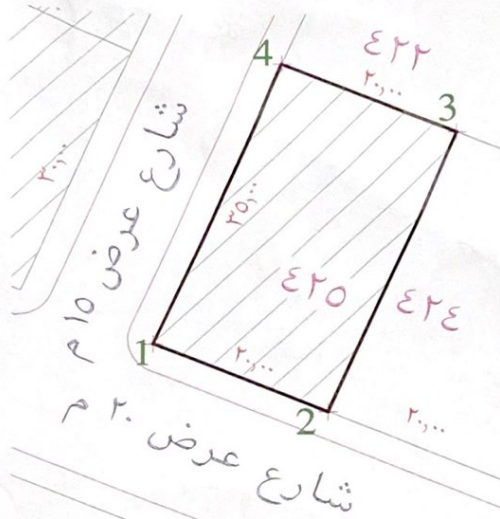 ٤٢٢
4
٢٠,٠٠
3
شارع عرض ١٥ م
٣٠,٠٠
٣٥,٠٠
٤٢٥
٤٢٤
1
٢٠,٠٠
2
٢٠,٠٠
شارع عرض ٢٠ م